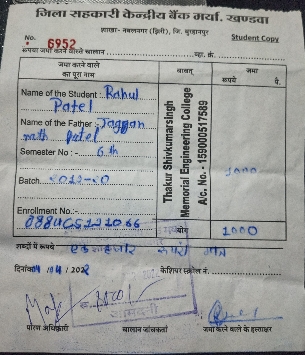 जिला सहकारी केन्द्रीय बैंक मर्या. खण्डवा
शाखा- नवलनगर (झिरी), जि. बुरहानपुर
No. 6952
Student Copy
रूपया जमा करने वाले चालान
जमा करने वाले का पूरा नाम
बाबत्
जमा
रूपये पै.
Name of the Student : Rahul
Patel
Name of the Father : Jaggan
nath Patel
Semester No :- 6th
Batch
Enrollment No.:-
Thakur Shivkumarsingh
Memorial Engineering College
A/c. No. - 159000517589
1000
योग 1000
शब्दों में रूपये एक हजार रूपये मात्र
दिनांक 04/04/2022
केशियर स्क्रोल नं.
प्रेरण अधिकारी
चालान जांचकर्ता
जमा करने वाले के हस्ताक्षर